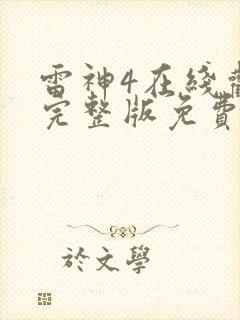 雷神4在綫
完整版免費
於文學